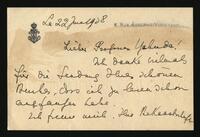 Le 22 Juni 1938
Lieber Professor Yahuda!
Ich danke vielmals
für die Sendung Ihres schönen
Buches, das ich zu lesen schon
angefangen habe.
Ich freue mich, Ihre Bekanntschaft